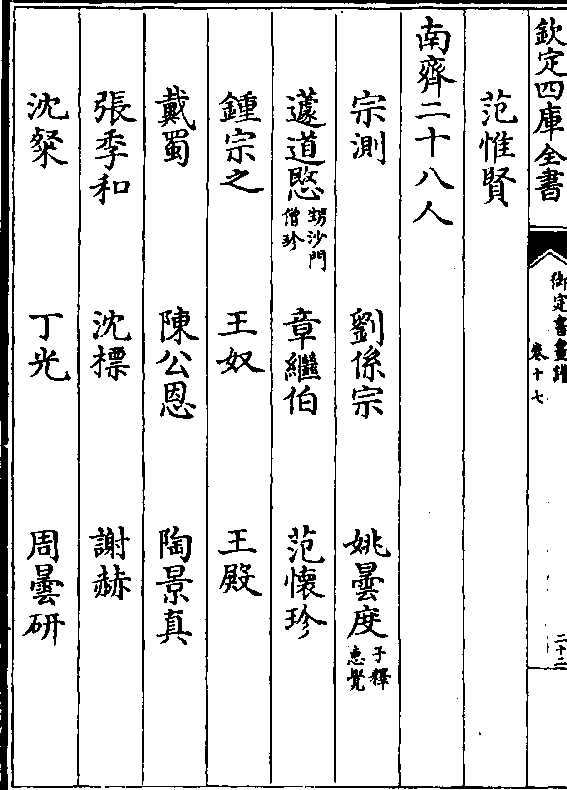 欽定四庫全書
御定書畫譜
卷十七
二十二
范惟賢
南齊二十八人
宗測 劉係宗 姚曇度 子釋惠覺
蘧道愍 甥沙門僧珍 章繼伯 范懷珍
鍾宗之 王奴 王殿
戴蜀 陳公恩 陶景真
張季和 沈摽 謝赫
沈粲 丁光 周曇研